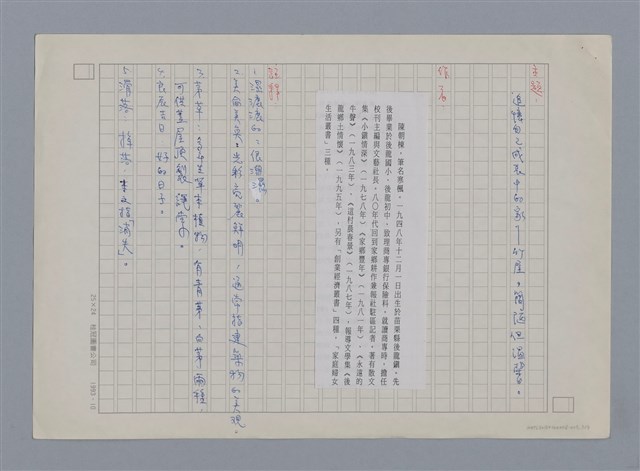 主題：
追憶自己成長中的家—竹屋，簡陋但溫馨。
作者：
陳朝棟，筆名寒楓，一九四八年十二月一日出生於苗栗縣後龍鎮。先
後畢業於後龍國小、後龍初中、致理商專銀行保險科，就讀商專時，擔任
校刊主編與文藝社長，八〇年代回到家鄉耕作兼報社駐區記者。著有散文
集《小鎮情深》（一九七八年）《家鄉豐年》（一九八一年）、《永遠的
牛聲》（一九八三年）、《這村農春景》（一九八七年），報導文學集《後
龍鄉土情懷》（一九九五年），另有、「創業經濟叢書」四種，「家庭婦女
生活叢書」三種。
註釋：
1.濕漉漉的：很潮濕。
2.美侖美奐：光彩亮麗鮮明，通常指建築物的美觀。
3.茅草：多年生草本植物，有青茅、白茅兩種，
可供蓋屋頂或製簑衣。
4.良辰吉日：好的日子。
5.凋落：掉落，本文指消失。
25×24
1993.10